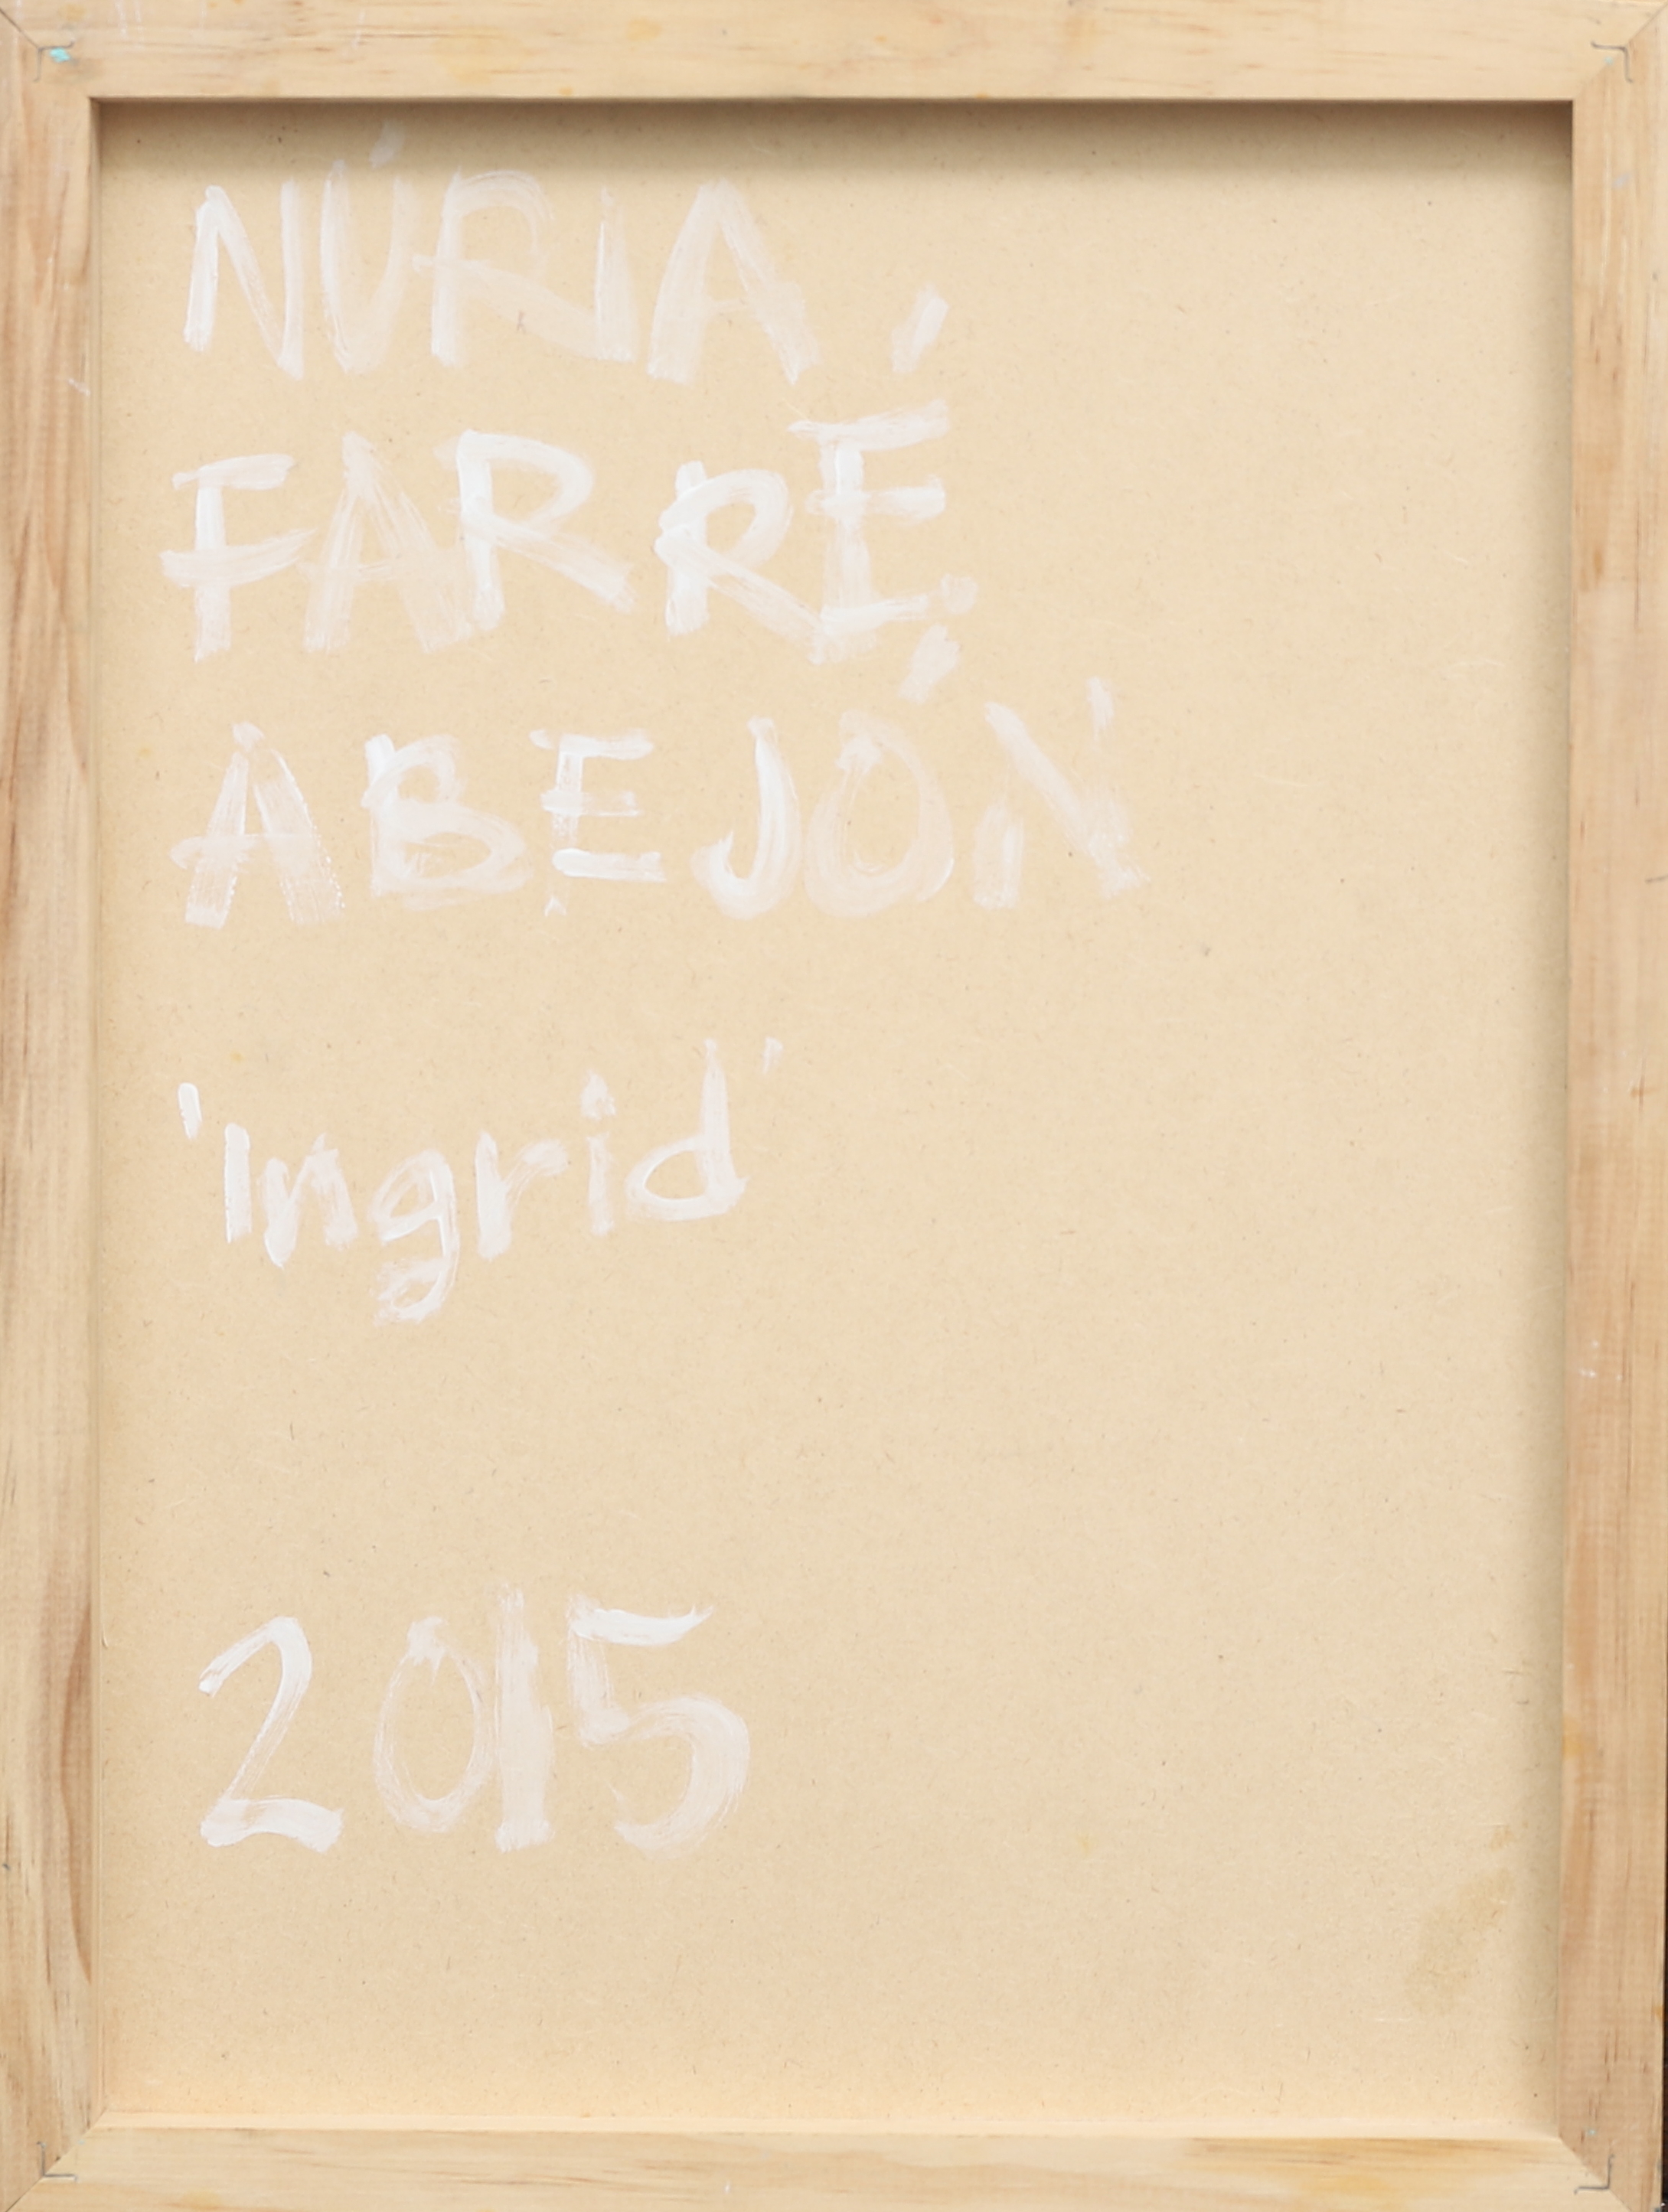 NÚRIA
FARRÉ
ABEJÓN
'Ingrid'
2015